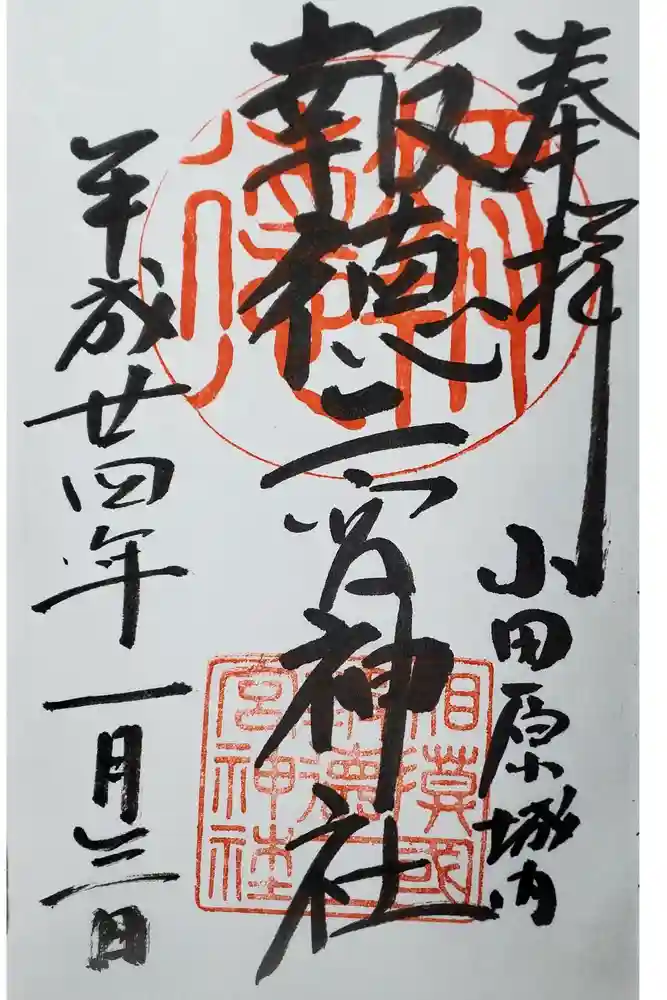 奉拝
小田原城内
報徳二宮神社
平成廿四年一月三日
相模國
報徳二
宮神社